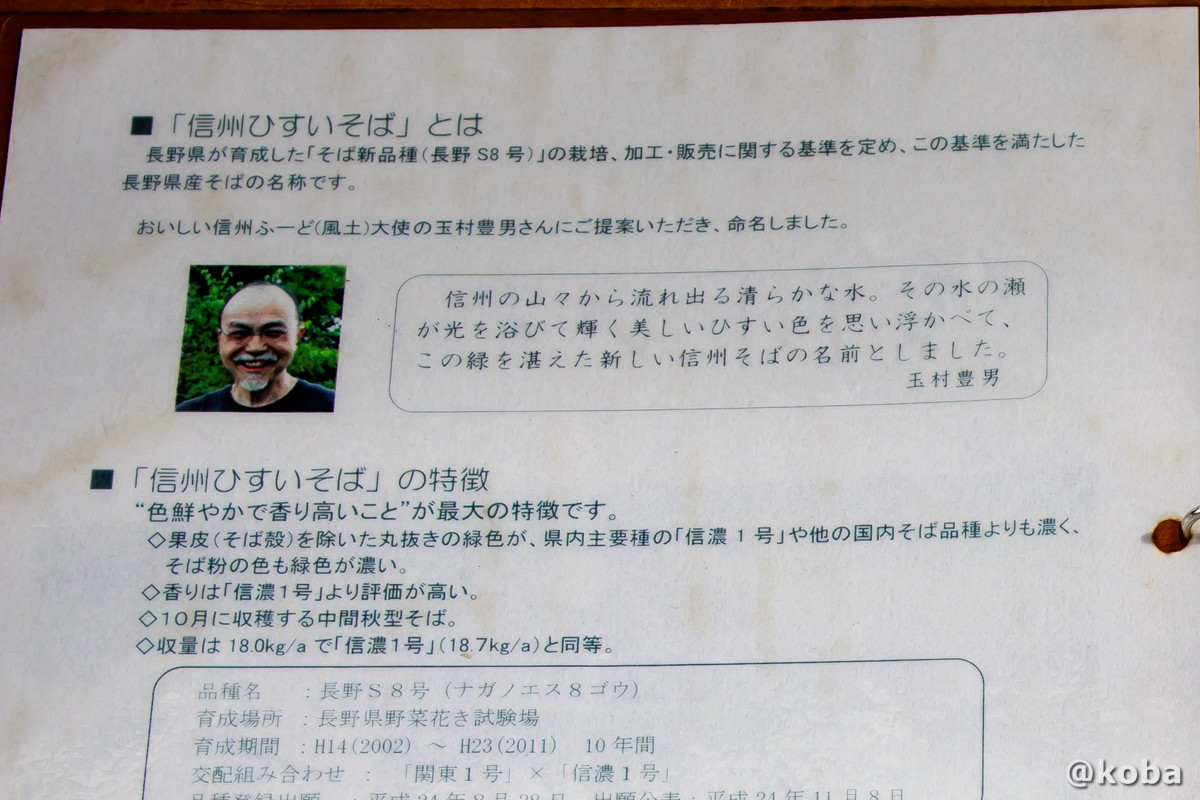 ■「信州ひすいそば」とは
長野県が育成した「そば新品種(長野S8号)」の栽培、加工・販売に関する基準を定め、この基準を満たした
長野県産そばの名称です。
おいしい信州ふーど(風土)大使の玉村豊男さんにご提案いただき、命名しました。
信州の山々から流れ出る清らかな水。その水の瀬
が光を浴びて輝く美しいひすい色を思い浮かべて、
この緑を湛えた新しい信州そばの名前としました。
玉村豊男
■「信州ひすいそば」の特徴
“色鮮やかで香り高いこと”が最大の特徴です。
◇果皮(そば殻)を除いた丸抜きの緑色が、県内主要種の「信濃1号」や他の国内そば品種よりも濃く、
そば粉の色も緑色が濃い。
◇香りは「信濃1号」より評価が高い。
◇10月に収穫する中間秋型そば。
◇収量は18.0kg/aで「信濃1号」(18.7kg/a)と同等。
品種名 :長野S8号(ナガノエス8ゴウ)
育成場所 :長野県野菜花き試験場
育成期間 :H14(2002) ～ H23(2011) 10年間
交配組み合わせ : 「関東1号」×「信濃1号」
品種登録出願 :平成24年8月28日 出願公表:平成24年11月8日
@koba